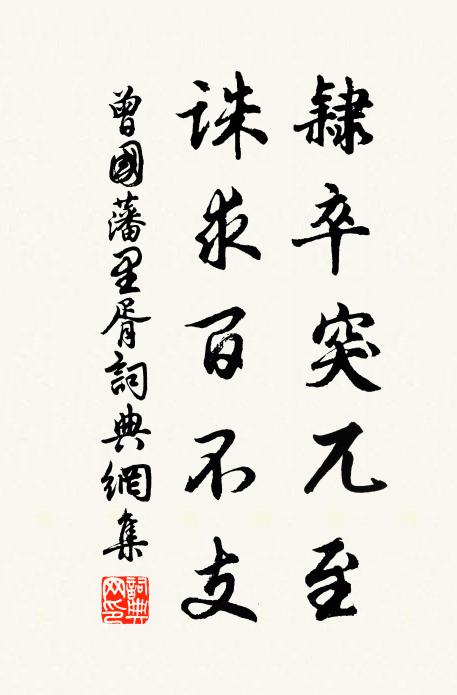 隸卒突兀至
誅求百不支
曾國藩里胥詞典網集
詞典網印